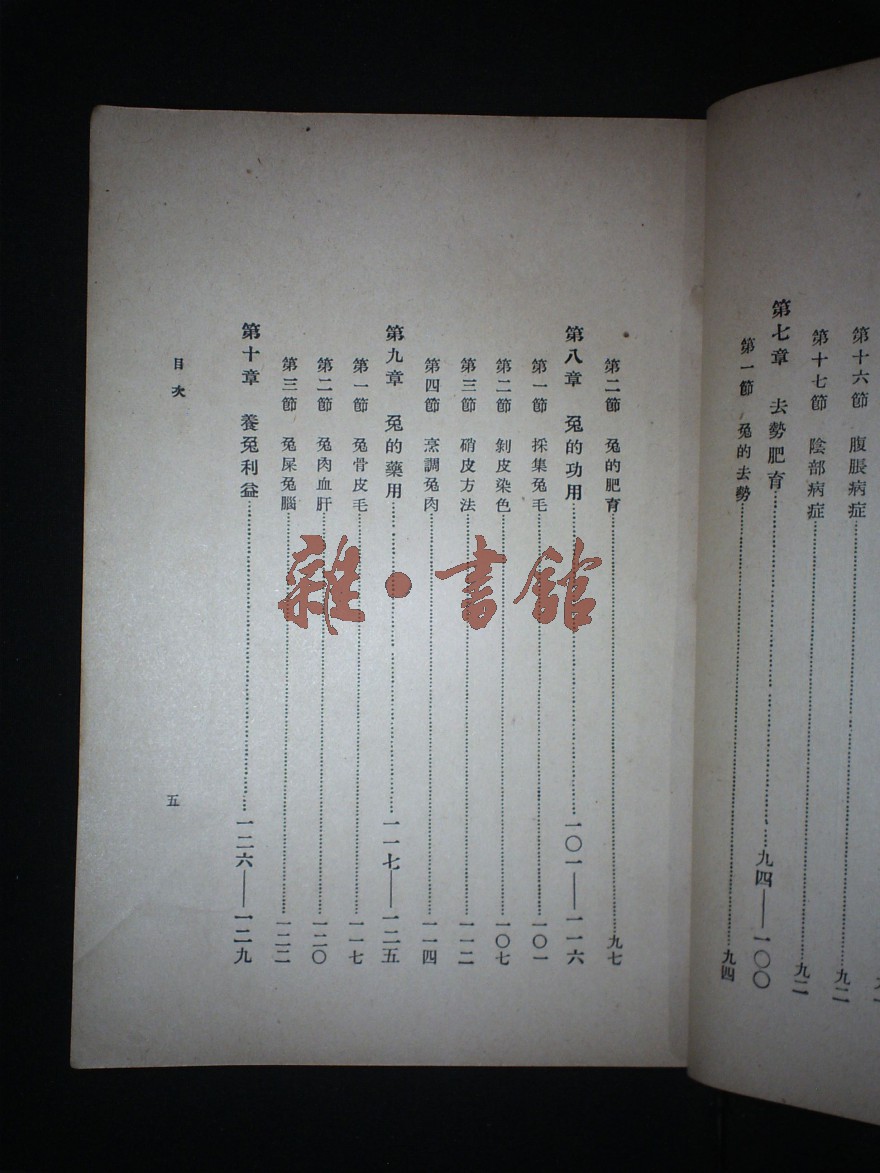 第十六節　腹脹病症……九二
第十七節　陰部病症……九二
第七章　去勢肥育……九四——一〇〇
第一節　兔的去勢……九四
第二節　兔的肥育……九七
第八章　兔的功用……一〇一——一一六
第一節　採集兔毛……一〇一
第二節　剝皮染色……一〇七
第三節　硝皮方法……一一二
第四節　烹調兔肉……一一四
第九章　兔的藥用……一一七——一二五
第一節　兔骨皮毛……一一七
第二節　兔肉血肝……一二〇
第三節　兔屎兔腦……一二二
第十章　養兔利益……一二六——一二九
目次
五
雜·書館